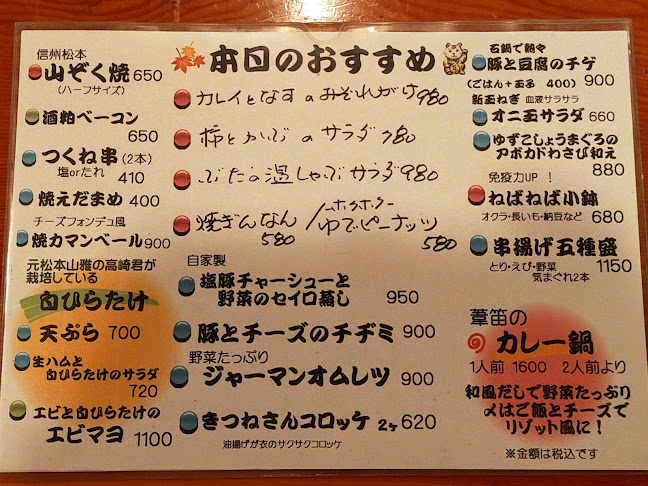 本日のおすすめ
信州松本
山ぞく焼 650
(ハーフサイズ)
酒粕ベーコン
650
つくね串(2本)
塩orたれ 410
焼えだまめ 400
チーズフォンデュ風
焼カマンベール 900
元松本山雅の高崎君が
栽培している
白ひらたけ
天ぷら 700
生ハムと
白ひらたけのサラダ
720
エビと白ひらたけの
エビマヨ 1100
カレイとなすのみぞれがけ 980
柿とかぶのサラダ 780
ぶたの温しゃぶサラダ 980
焼ぎんなん
580
ホクホク
ゆでピーナッツ
580
自家製
塩豚チャーシューと
野菜のセイロ蒸し 950
豚とチーズのチヂミ 900
野菜たっぷり
ジャーマンオムレツ 900
きつねさんコロッケ 2ヶ 620
油揚げが衣のサクサクコロッケ
石鍋で熱々
豚と豆腐のチゲ
(ごはん+玉子 400) 900
新玉ねぎ 血液サラサラ
オニ玉サラダ 660
ゆずこしょうまぐろの
アボカドわさび和え
880
免疫力UP!
ねばねば小鉢
オクラ・長いも・納豆など 680
串揚げ五種盛
とり・えび・野菜 1150
気まぐれ2本
葦笛の
カレー鍋
1人前 1600 2人前より
和風だしで野菜たっぷり
〆はご飯とチーズで
リゾット風に!
※金額は税込です